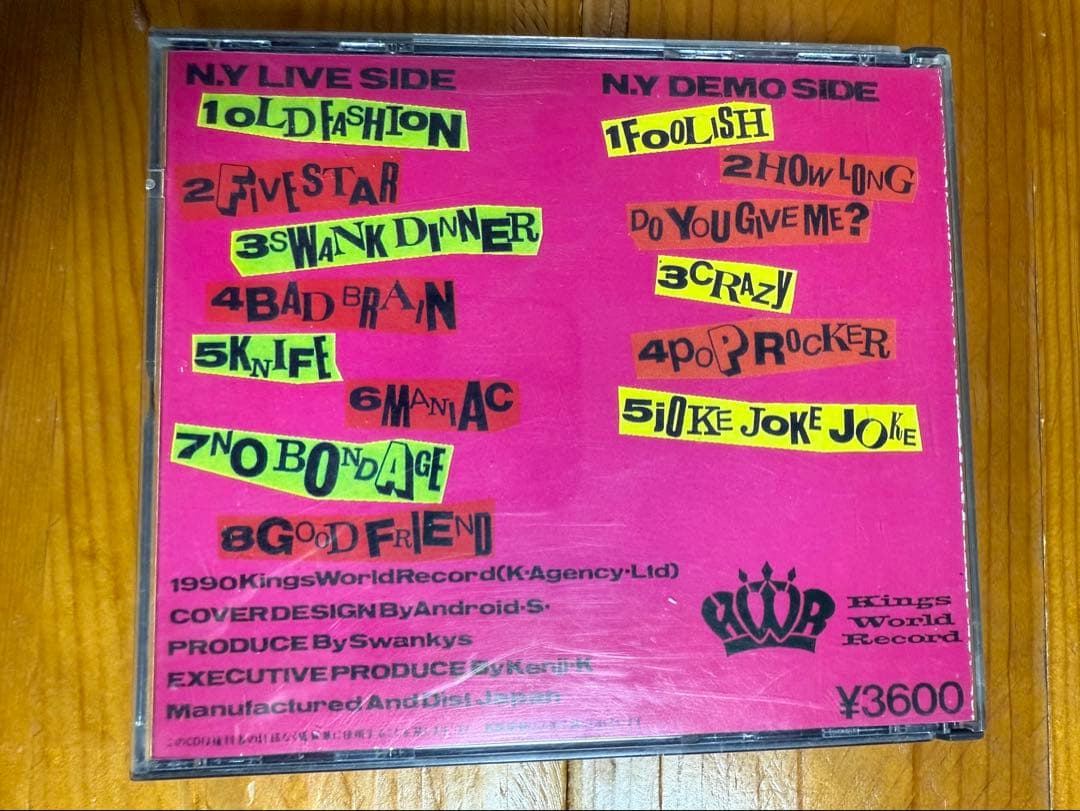 N.Y LIVE SIDE
1 OLD FASHION
2 FIVE STAR
3 SWANK DINNER
4 BAD BRAIN
5 KNIFE
6 MANIAC
7 NO BONDAGE
8 GOOD FRIEND
N.Y DEMO SIDE
1 FOOLISH
2 HOW LONG
DO YOU GIVE ME?
3 CRAZY
4 POP ROCKER
5 JOKE JOKE JOKE
1990 Kings World Record (K·Agency·Ltd)
COVER DESIGN By Android·S·
PRODUCE By Swankys
EXECUTIVE PRODUCE By Kenji·K
Manufactured And Dist Japan
このCDは権利者の許諾なく
KWR
Kings
World
Record
¥3600